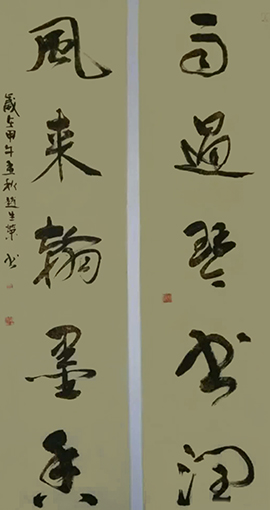 雨過琴書潤
風来翰墨香
歲在甲午孟秋趙生榮书